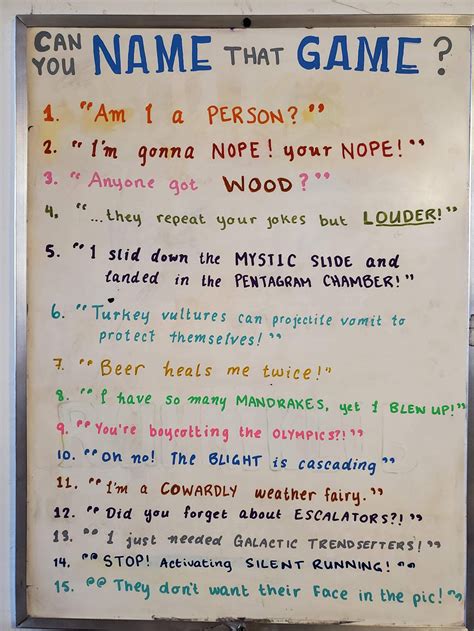 CAN YOU NAME THAT GAME?
1. "Am I a PERSON?"
2. "I'm gonna NOPE! your NOPE!"
3. "Anyone got WOOD?"
4. "...they repeat your jokes but LOUDER!"
5. "I slid down the MYSTIC SLIDE and
landed in the PENTAGRAM CHAMBER!"
6. "Turkey vultures can projectile vomit to
protect themselves!"
7. "Beer heals me twice!"
8. "I have so many MANDRAKES, yet I BLEW UP!"
9. "You're boycotting the OLYMPICS?!"
10. "Oh no! The BLIGHT is cascading"
11. "I'm a COWARDLY weather fairy."
12. "Did you forget about ESCALATORS?!"
13. "I just needed GALACTIC TRENDSETTERS!"
14. "STOP! Activating SILENT RUNNING!"
15. "They don't want their Face in the pic!"